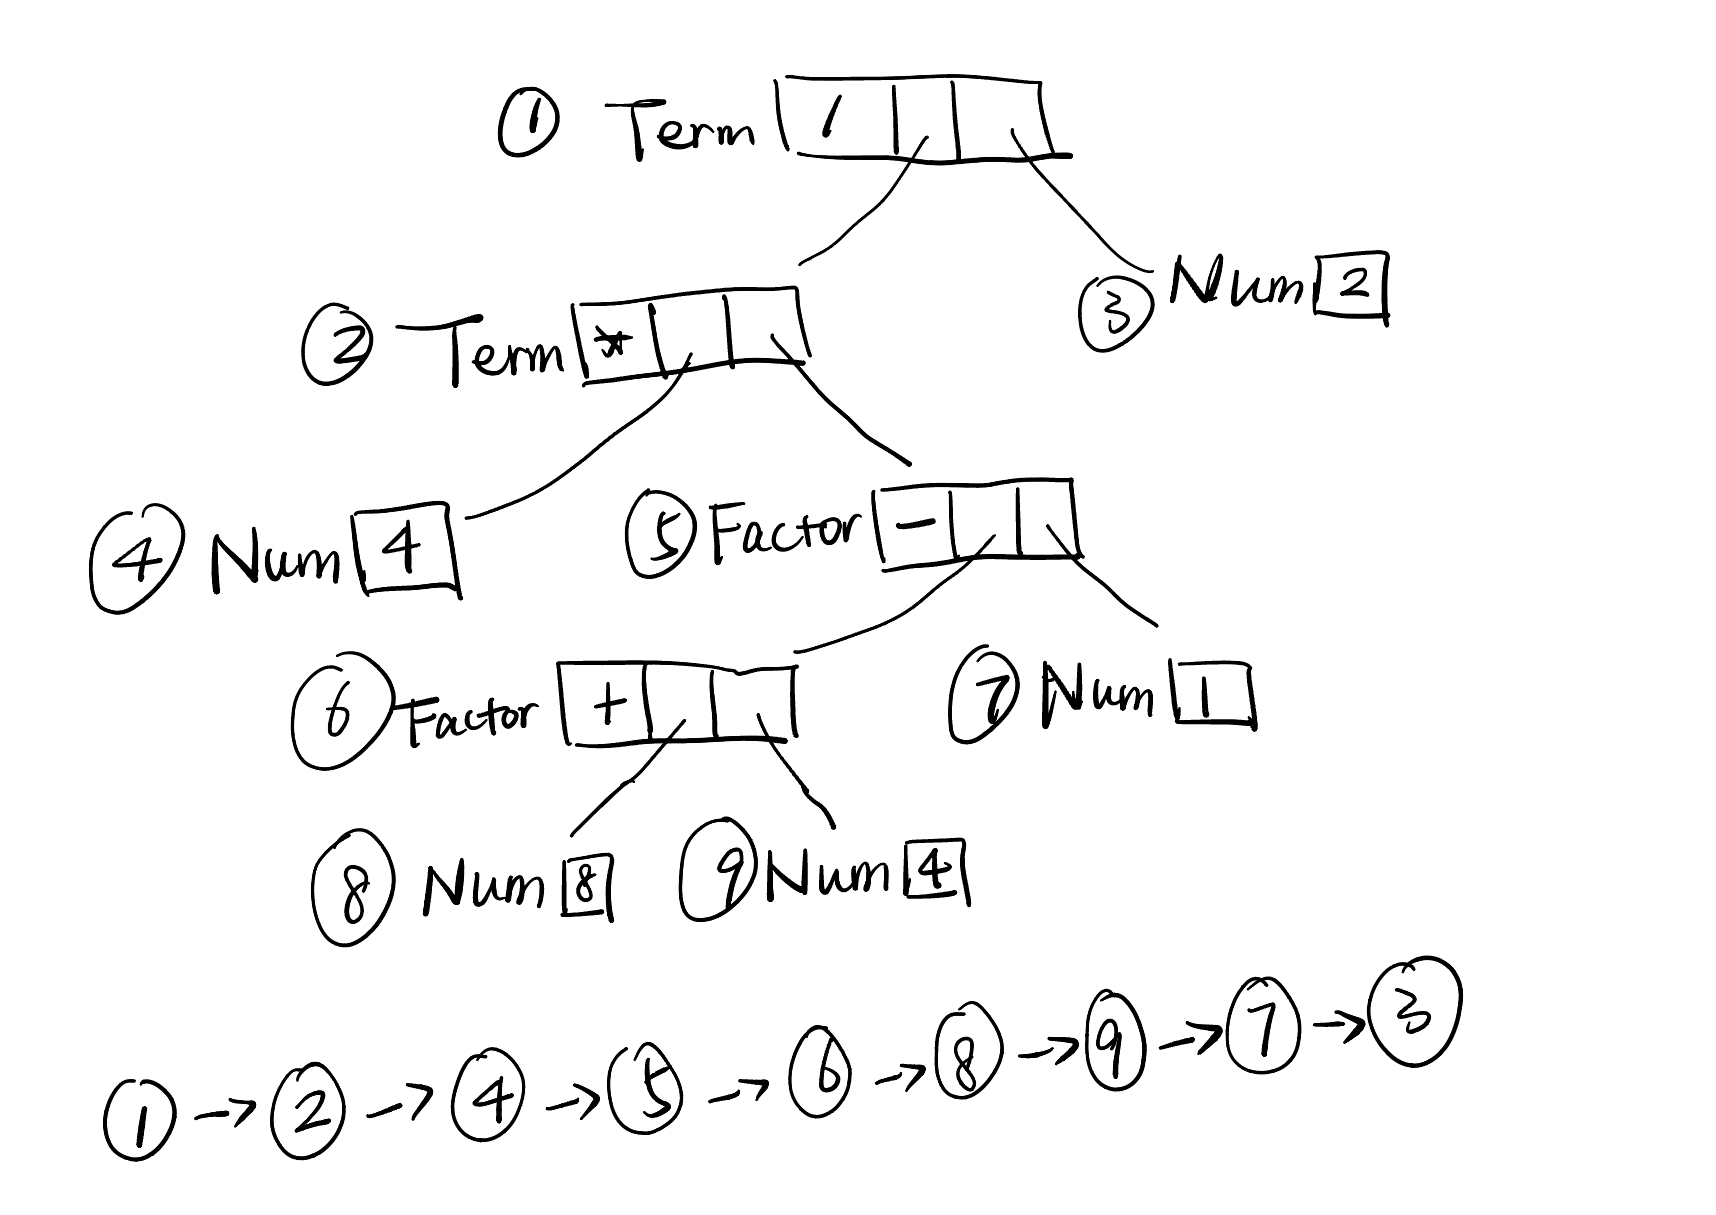 ① Term / 
② Term *
③ Num 2
④ Num 4
⑤ Factor -
⑥ Factor +
⑦ Num 1
⑧ Num 8
⑨ Num 4
① → ② → ④ → ⑤ → ⑥ → ⑧ → ⑨ → ⑦ → ③